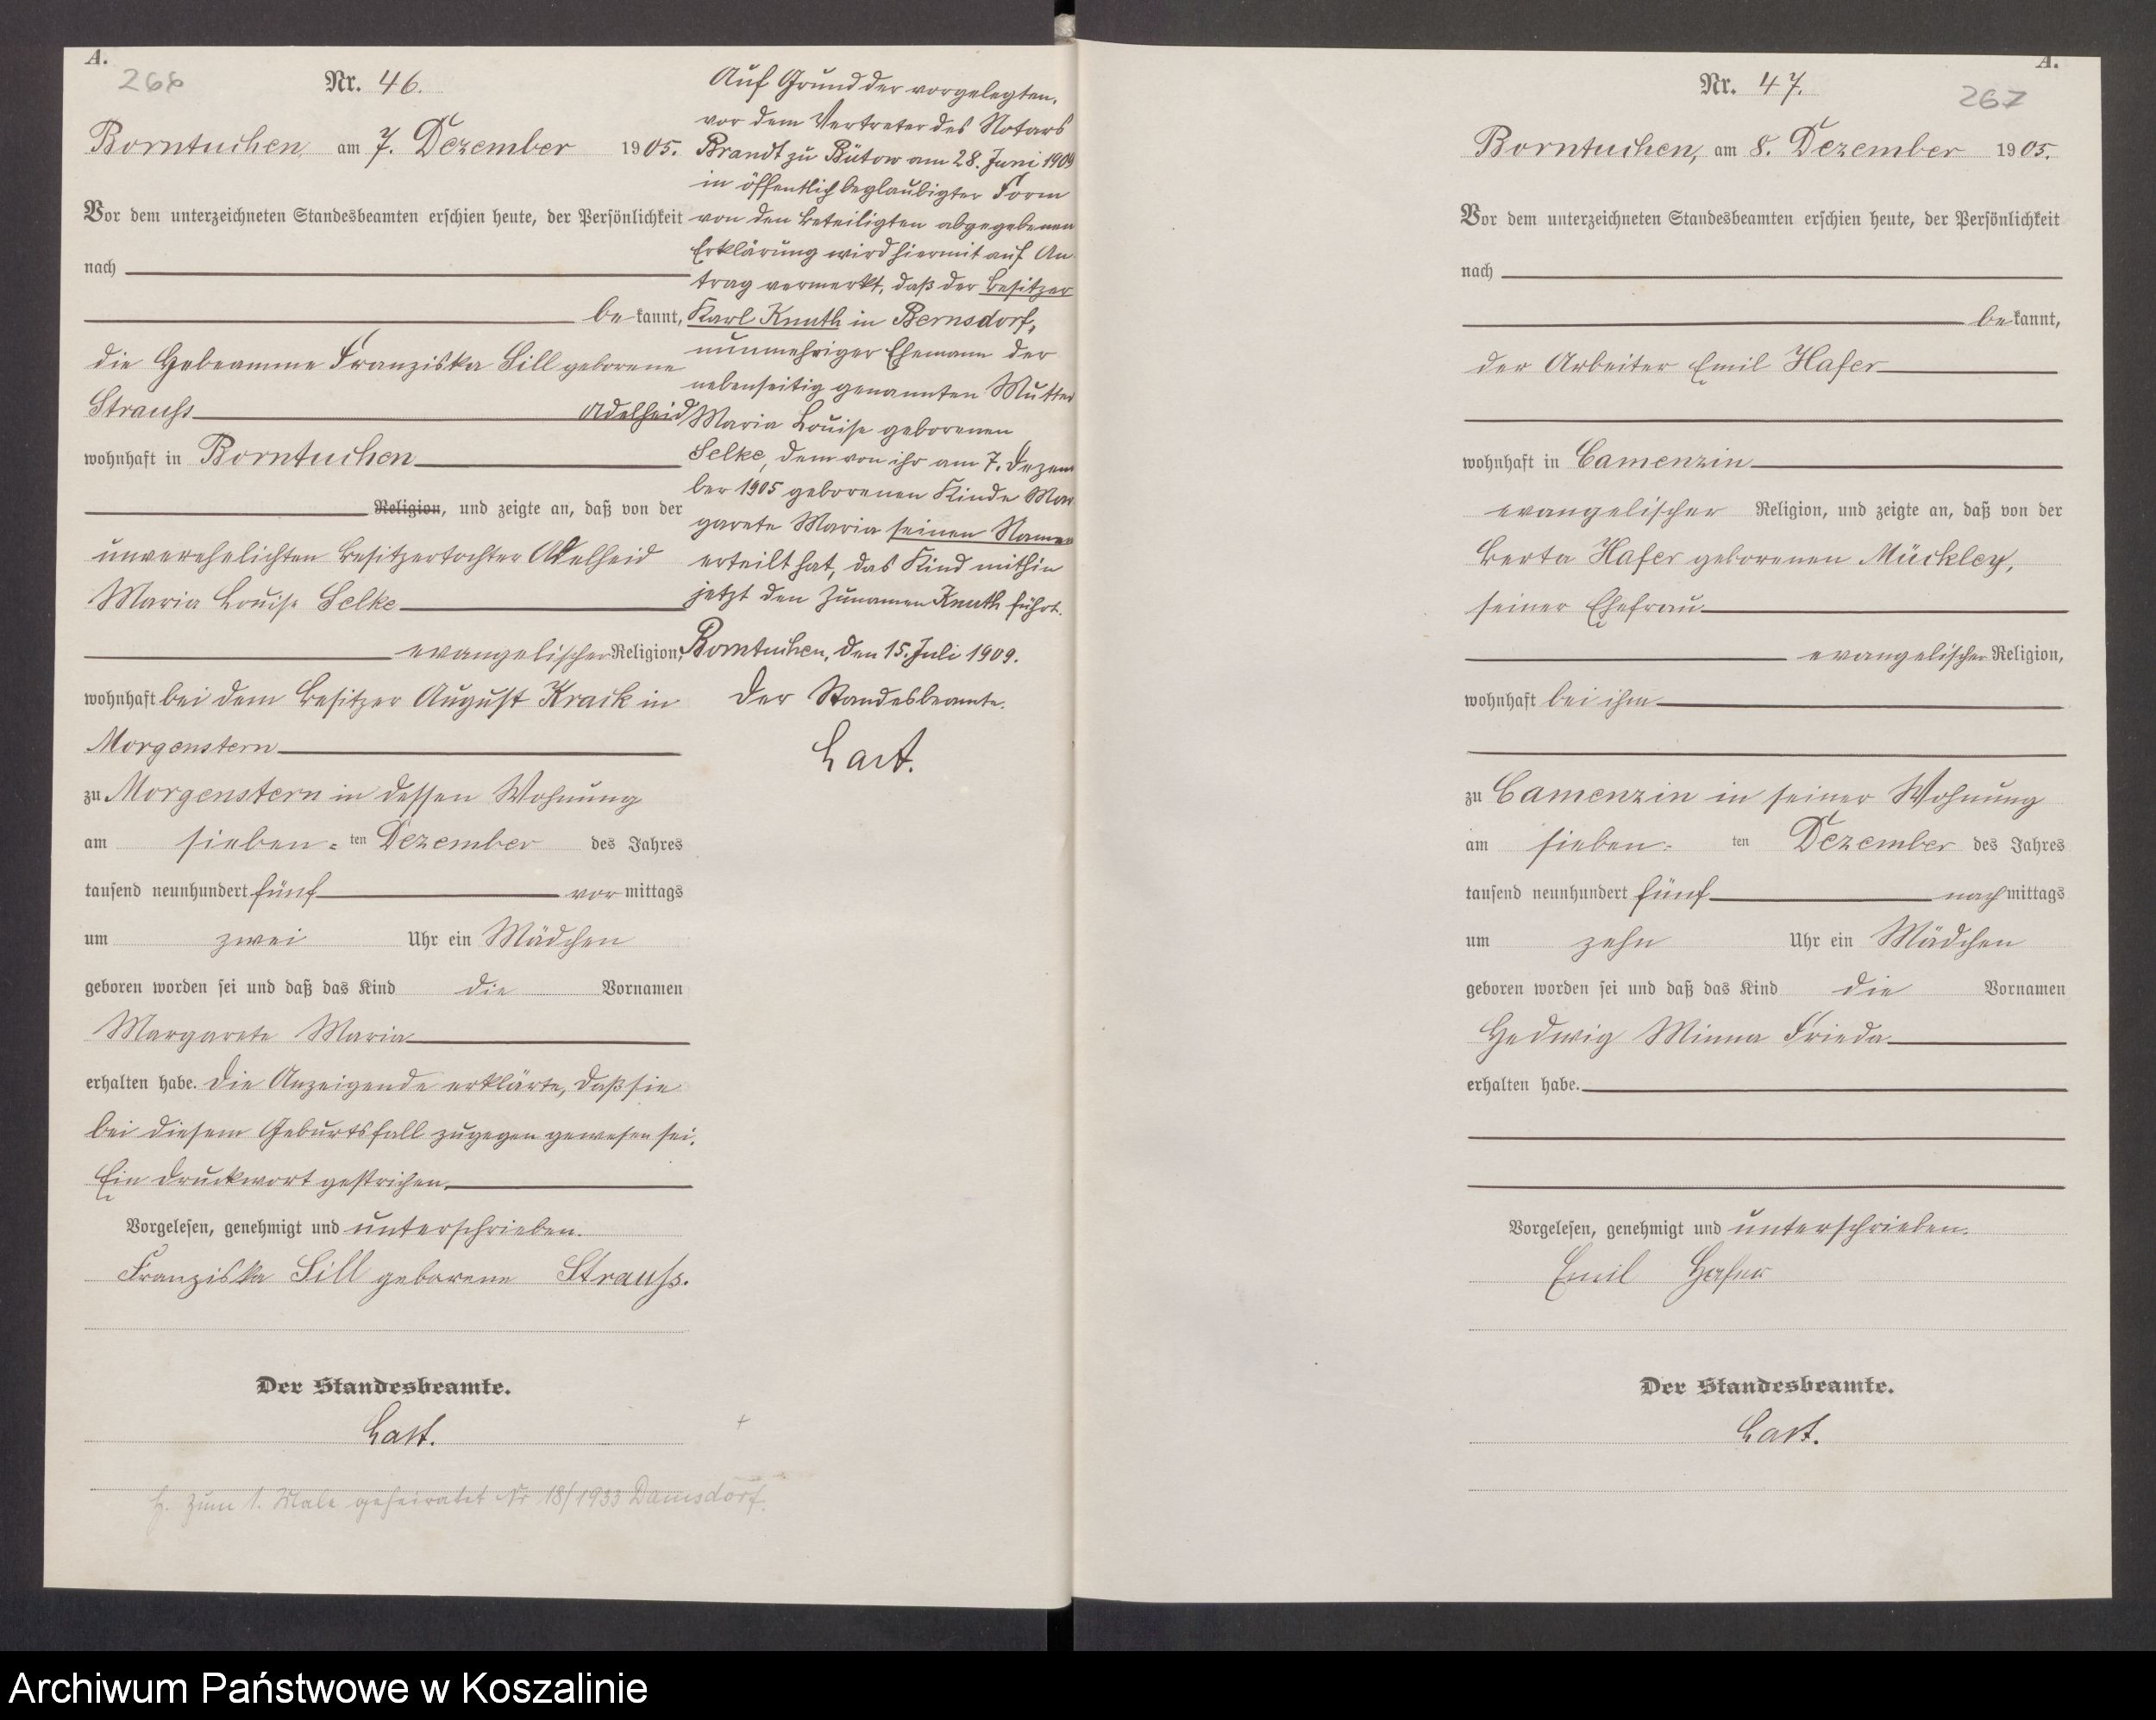 A.
266
Nr. 46.
Borntuchen, am 7. Dezember 1905.
Vor dem unterzeichneten Standesbeamten erschien heute, der Persönlichkeit
nach
be kannt,
die Hebeamme Franziska Sill geborene
Strauss
wohnhaft in Borntuchen
Religion, und zeigte an, daß von der
unverehelichten Besitzertochter Adelheid
Maria Louise Selke
evangelischer Religion,
wohnhaft bei dem Besitzer August Krack in
Morgenstern
zu Morgenstern in dessen Wohnung
am sieben= ten Dezember des Jahres
tausend neunhundert fünf vor mittags
um zwei Uhr ein Mädchen
geboren worden sei und daß das Kind die Vornamen
Margarete Maria
erhalten habe. Die Anzeigende erklärte, daß sie
bei diesem Geburtsfall zugegen gewesen sei.
Ein Druckwort gestrichen.
Vorgelesen, genehmigt und unterschrieben.
Franziska Sill geborene Strauss.
Der Standesbeamte.
Last.
H. zum 1. Male geheiratet Nr 18/1933 Damsdorf.
Auf Grund der vorgelegten,
vor dem Vertreter des Notars
Brandt zu Bütow am 28. Juni 1909
in öffentlich beglaubigter Form
von den Beteiligten abgegebenen
Erklärung wird hiermit auf An
trag vermerkt, daß der Besitzer
Karl Knuth in Bernsdorf,
nunmehriger Ehemann der
nebenseitig genannten Mutter
Adelheid Maria Louise geborenen
Selke, dem von ihr am 7. Dezem
ber 1905 geborenen Kinde Mar
garete Maria seinen Namen
erteilt hat, das Kind mithin
jetzt den Zunamen Knuth führt.
Borntuchen, den 15. Juli 1909.
Der Standesbeamte.
Last.
A.
267
Nr. 47.
Borntuchen, am 8. Dezember 1905.
Vor dem unterzeichneten Standesbeamten erschien heute, der Persönlichkeit
nach
be kannt,
der Arbeiter Emil Hafer
wohnhaft in Camenzin
evangelischer Religion, und zeigte an, daß von der
Berta Hafer geborenen Mückley,
seiner Ehefrau
evangelischer Religion,
wohnhaft bei ihm
zu Camenzin in seiner Wohnung
am sieben= ten Dezember des Jahres
tausend neunhundert fünf nach mittags
um zehn Uhr ein Mädchen
geboren worden sei und daß das Kind die Vornamen
Hedwig Minna Frieda
erhalten habe.
Vorgelesen, genehmigt und unterschrieben.
Emil Hafer
Der Standesbeamte.
Last.
Archiwum Państwowe w Koszalinie